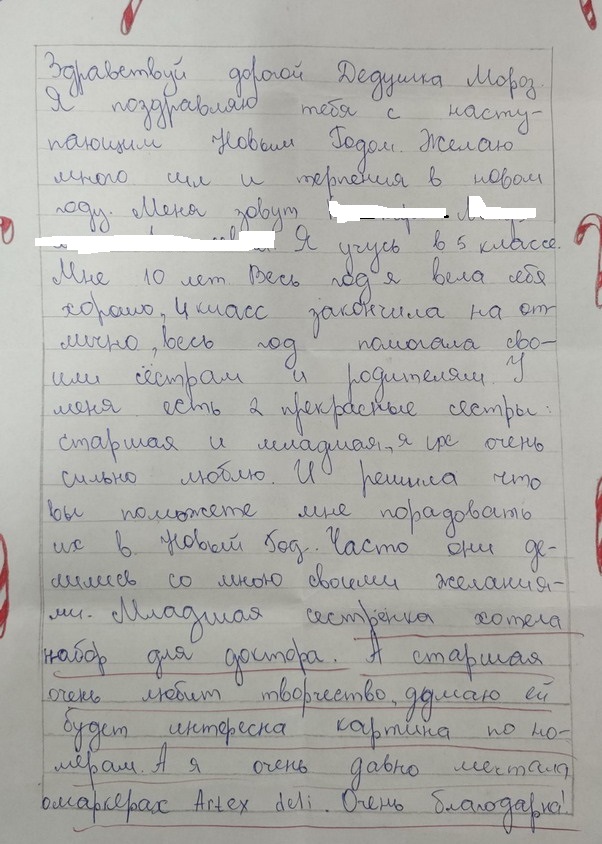 Здравствуй дорогой Дедушка Мороз.
Я поздравляю тебя с насту-
пающим Новым Годом. Желаю
много сил и терпения в новом
году. Меня зовут
Я учусь в 5 классе.
Мне 10 лет. Весь год я вела себя
хорошо, 4 класс закончила на от
лично, весь год помогала сво-
им сёстрам и родителям. У
меня есть 2 прекрасные сестры:
старшая и младшая, я их очень
сильно люблю. И решила что
вы поможете мне порадовать
их в Новый Год. Часто они де-
лились со мною своими желания-
ми. Младшая сестрёнка хотела
набор для доктора. А старшая
очень любит творчество, думаю ей
будет интересна картина по но-
мерам. А я очень давно мечтала
о маркерах Artex deli. Очень благодарна!